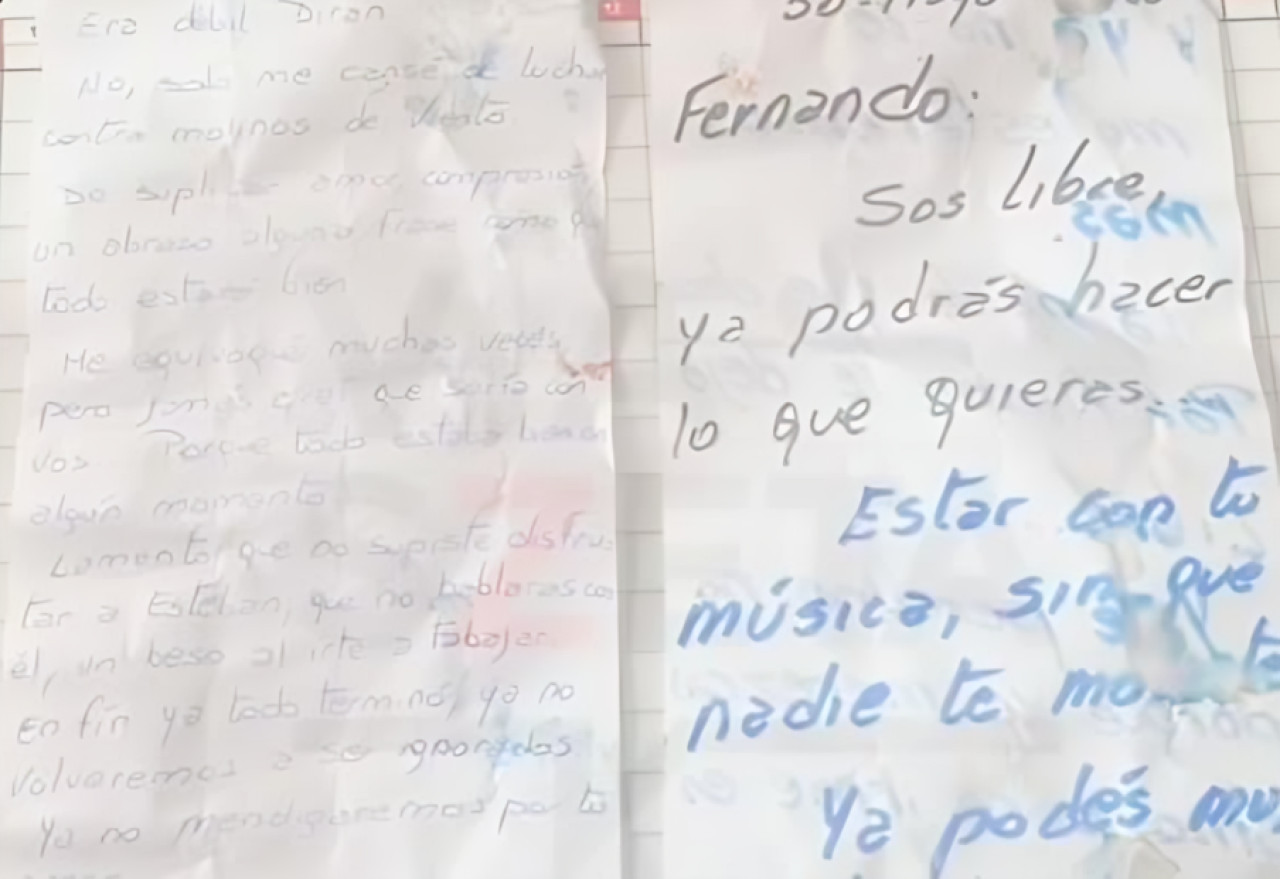 Era débil Diran
No, solo me cansé de lucha
contra molinos de Viento.
De suplicar amor, compresión
un abrazo alguna frase como q
todo estará bien
Me equivoqué muchas veces,
pero jamás creí que sería con
vos Porque todo estaba bien en
algún momento
Lamento que no supiste disfru-
tar a Esteban, que no hablaras con
él, un beso al irte a trabajar
En fin ya todo terminó, ya no
Volveremos a ser ignorados
Ya no mendigaremos por tu
30-Mayo
Fernando:
Sos Libre,
ya podrás hacer
lo que quieras.
Estar con tu
música, sin que
nadie te mo
Ya podés mu